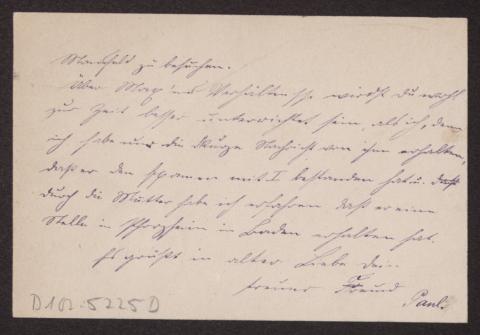 Mansfeld zu besuchen.
Über Max' ens Verhältnisse wirst Du wohl
zur Zeit besser unterrichtet sein, als ich, denn
ich habe nur die kurze Nachricht von ihm erhalten,
daß er den Examen mit I bestanden hat u. daß
durch die Mutter habe ich erfahren daß er eine
Stelle in Pforzheim in Baden erhalten hat.
Es grüßt in alter Liebe Dein
treuer Freund
Paul.
D102:5225D